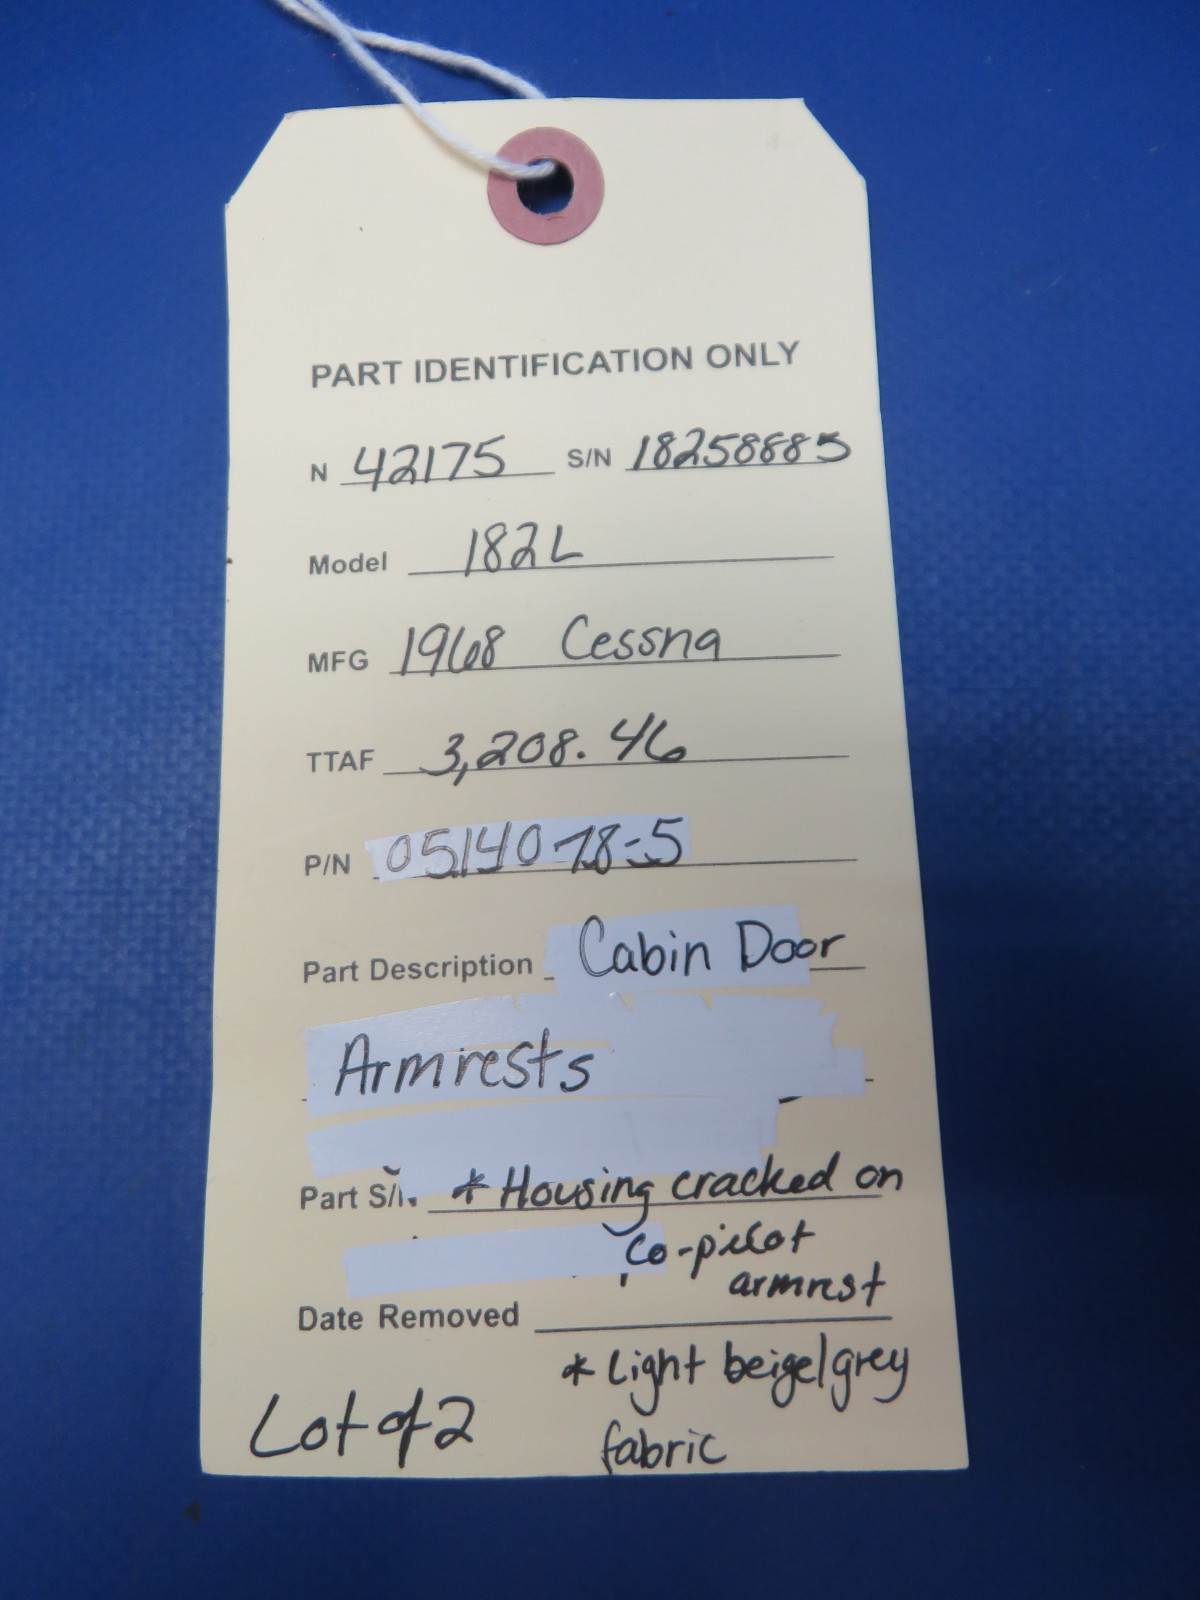 PART IDENTIFICATION ONLY
N 42175 S/N 18258885
Model 182L
MFG 1968 Cessna
TTAF 3,208.46
P/N 0514078-5
Part Description Cabin Door
Armrests
Part S/N * Housing cracked on
co-pilot
armrest
Date Removed
* Light beige/grey
Lot of 2 fabric